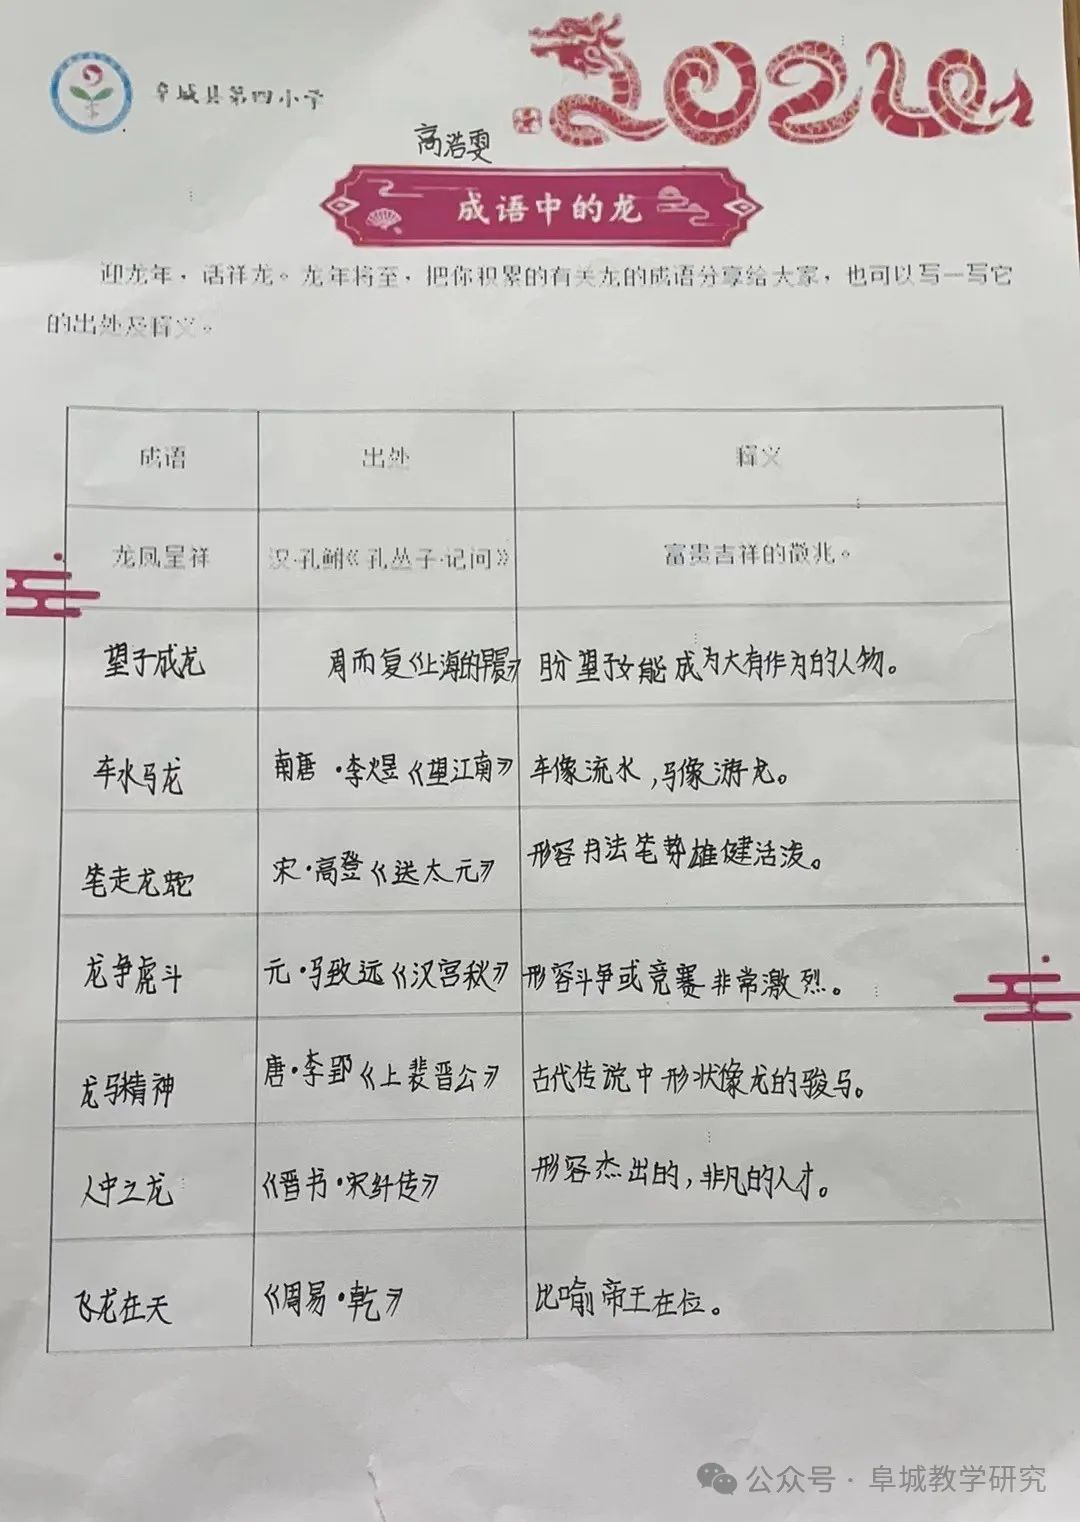 阜城县第四小学
2024
高浩雯
成语中的龙
迎龙年，话祥龙。龙年将至，把你积累的有关龙的成语分享给大家，也可以写一写它
的出处及释义。
成语 出处 释义
龙凤呈祥 汉·孔鲋《孔丛子·记问》 富贵吉祥的徵兆。
望子成龙 周而复《上海的早晨》 盼望子女能成为大有作为的人物。
车水马龙 南唐·李煜《望江南》 车像流水，马像游龙。
笔走龙蛇 宋·高登《送太元》 形容书法笔势雄健活泼。
龙争虎斗 元·马致远《汉宫秋》 形容斗争或竞赛非常激烈。
龙马精神 唐·李郢《上裴晋公》 古代传说中形状像龙的骏马。
人中之龙 《晋书·宋纤传》 形容杰出的，非凡的人才。
飞龙在天 《周易·乾》 比喻帝王在位。
公众号·阜城教学研究